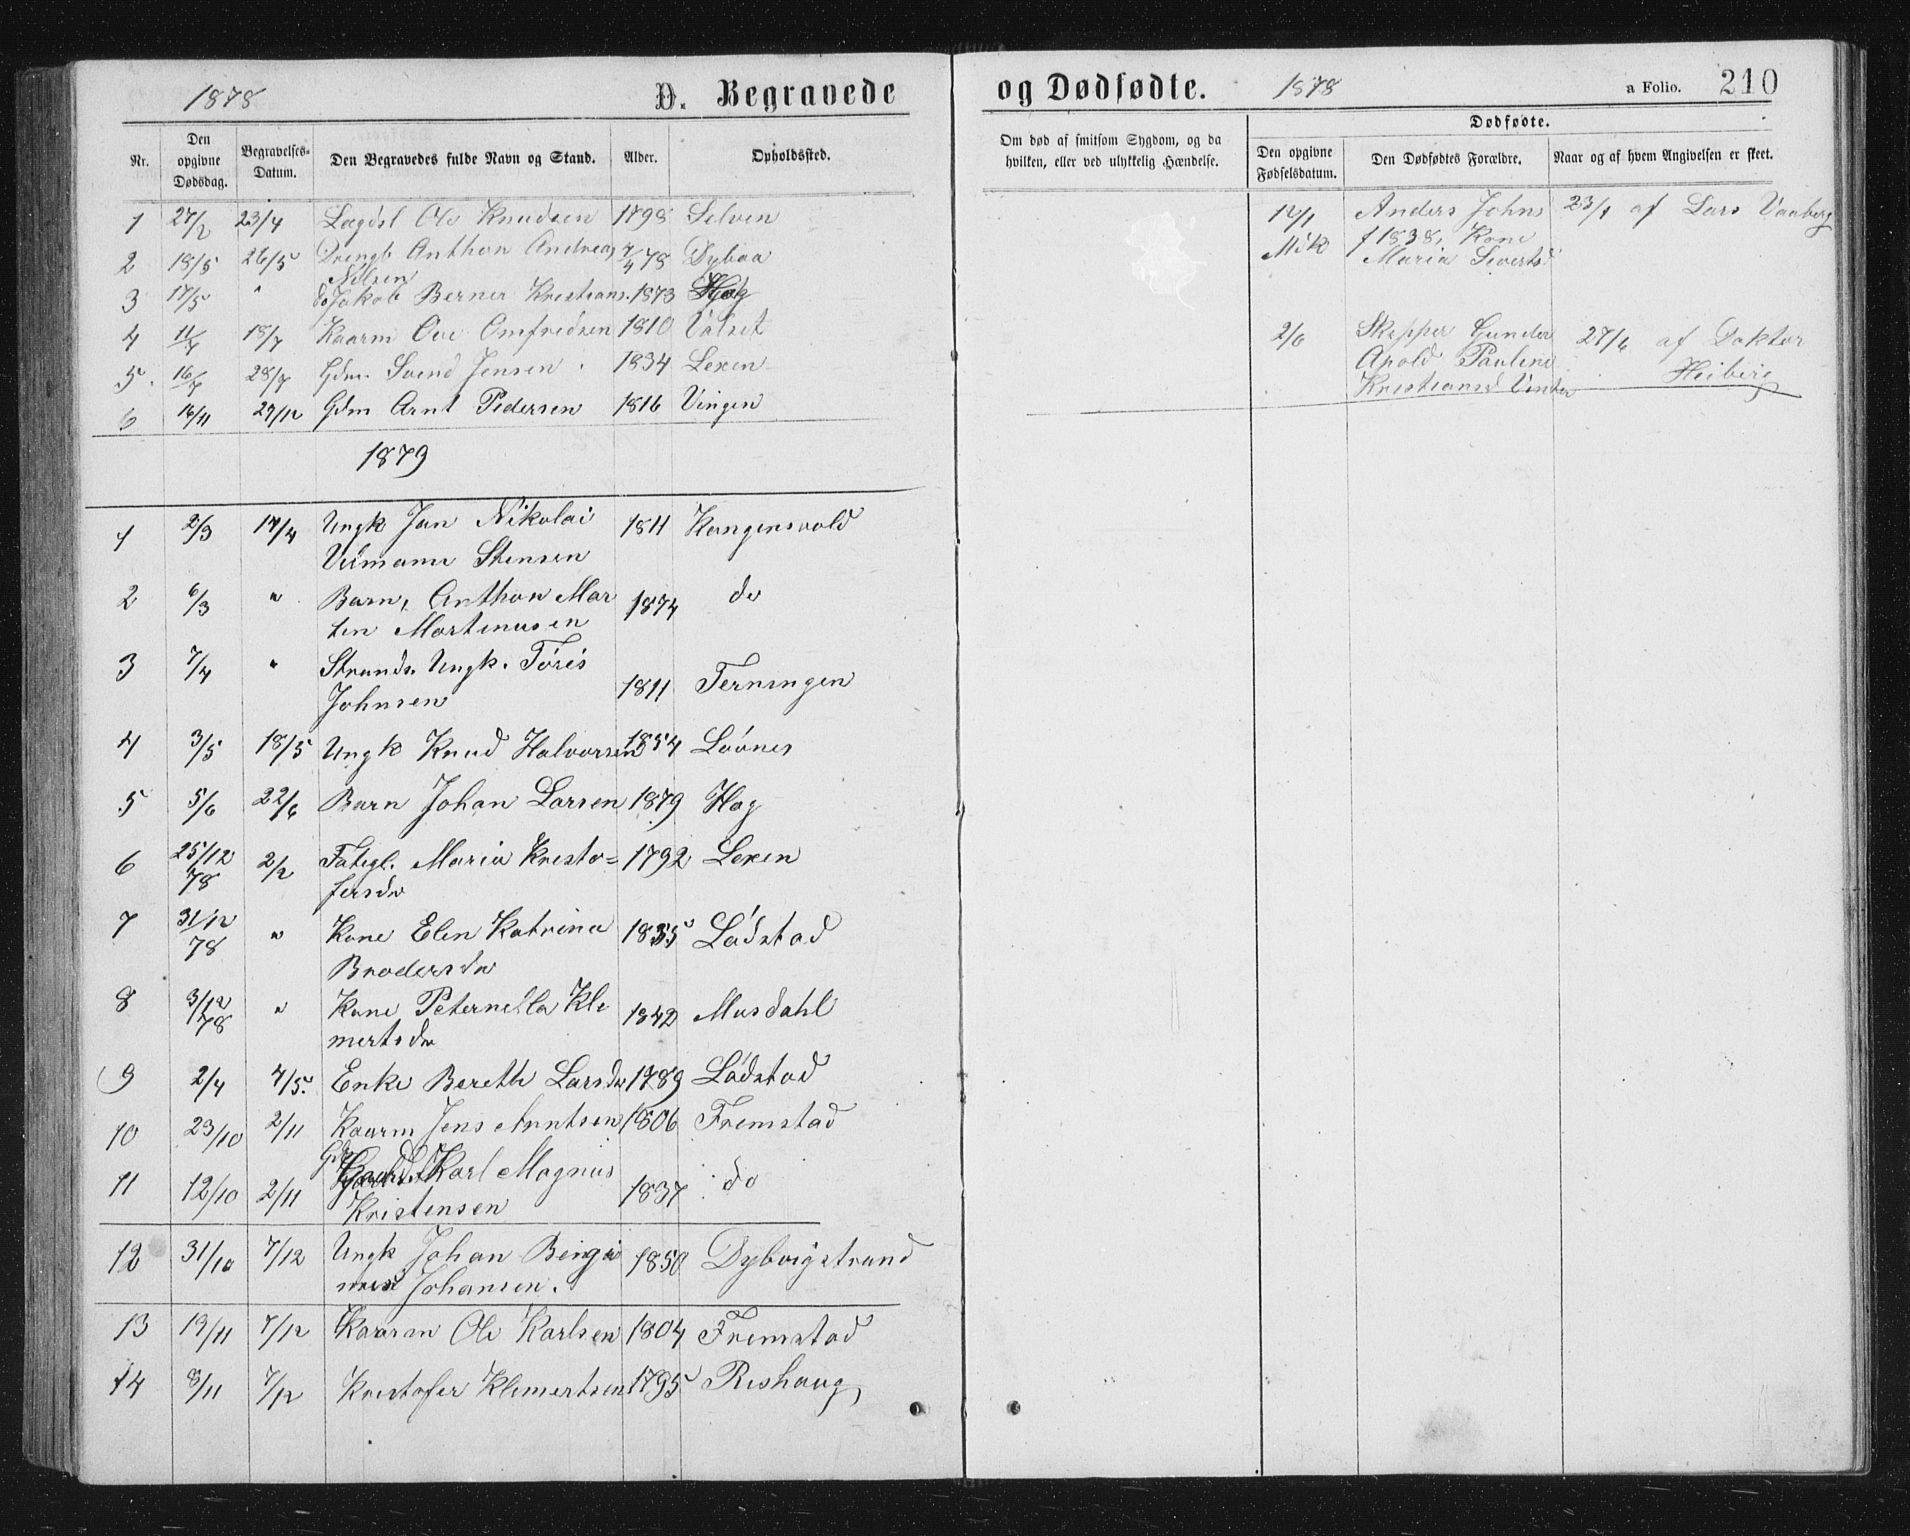 1878 D. Begravede
Nr. Den opgivne Dødsdag. Begravelses-Datum. Den Begravedes fulde Navn og Stand. Alder. Opholdssted.
1 27/2 23/4 Lægdsl Ole Knudsen 1798 Selven
2 18/5 26/5 Drengb Anthon Andreas 7/4 78 Dybaa
Nilsen
3 17/5 " do Jakob Berner Kristians. 1873 Hog
4 11/7 18/7 Kaarm Ole Omfredsen 1810 Valset
5. 16/7 28/7 Gdm. Svend Jensen. 1834 Lexen
6 16/11 29/12 Gdm Arnt Pedersen 1816 Vingen
1879
1 2/3 17/4 Ungk Jan Nikolai 1811 Kongensvold
Velmann Stensen
2 6/3 " Barn, Anthon Mar 1874 do
tin Martinusen
3 7/4 " Strands. Ungk. Töris
Johnsen 1811 Terningen
4 3/5 18/5 Ungk Knud Halvorsen 1854 Lövnes
5 5/6 22/6 Barn Johan Larsen 1879 Hog
6 25/12 78 2/2 Fatigl. Maria Kristo= 1792 Lexen
fersdr
7 31/12 78 " Kone Elen Katrina 1835 Lödstad
Brodersdr
8 3/12 78 " Kone Peternella Kle 1842 Musdahl
mertsdr
9 2/4 4/5. Enke Bereth Larsdr 1789 Lödstad
10 23/10 2/11 Kaarm Jens Arntsen 1806 Fremstad
11 12/10 2/11 Karl Magnus
Kristensen 1837 do
12 31/10 7/12 Ungk Johan Benja 1850 Dybvigstrand
Johansen.
13 19/11 7/12 Kaarm Ole Karlsen 1804 Fremstad
14 8/11 7/12 Kristofer Klemertsen 1795 Rishaug
og Dødfødte. 1878 a Folio. 210
Om død af smitsom Sygdom, og da hvilken, eller ved ulykkelig Hændelse.
Dødfødte.
Den opgivne Fødselsdatum. Den Dødfødtes Forældre. Naar og af hvem Angivelsen er skeet.
12/1 Anders Johns 23/1 af Lars Vaaberg
f 1838, Kone
Maria Siverts
2/6 Skipper Gunder 27/6 af Doktor
Apold Pauline Heiberg
Kristiansd Vinter